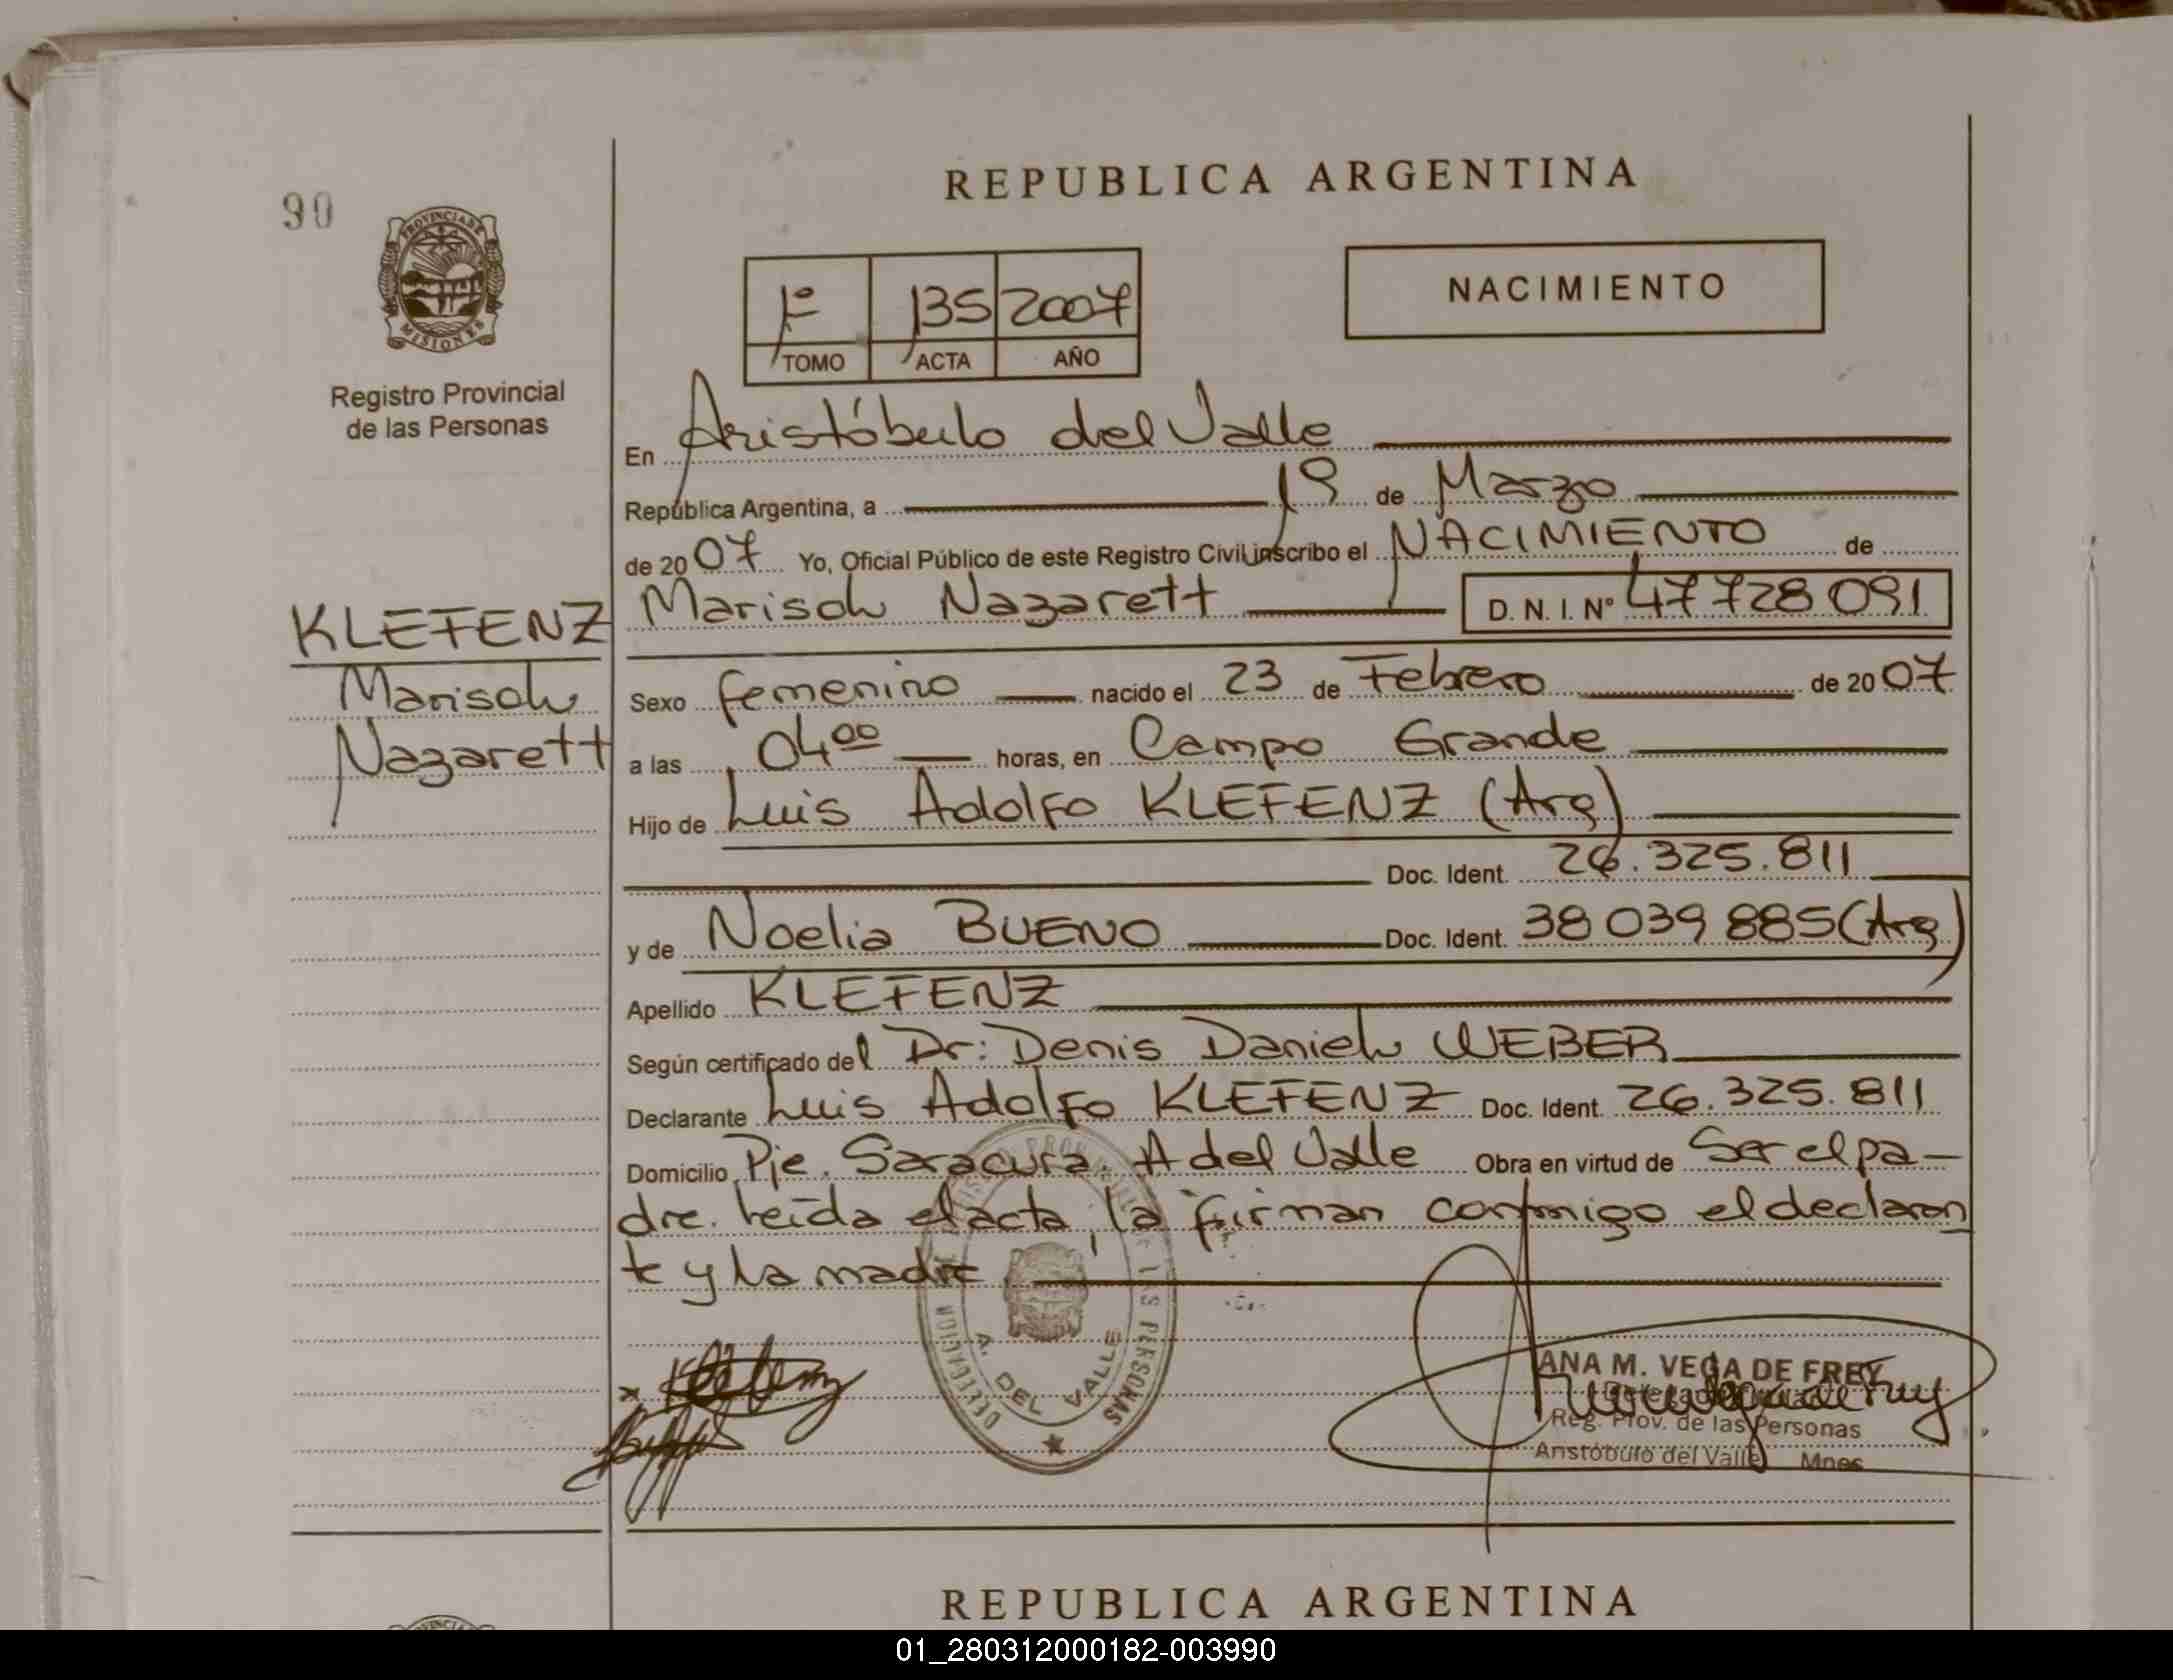 REPUBLICA ARGENTINA
90
PROVINCIA DE MISIONES
Registro Provincial
de las Personas
1º 135 2007
TOMO ACTA AÑO
NACIMIENTO
En Aristóbulo del Valle
República Argentina, a 19 de Marzo
de 2007 Yo, Oficial Público de este Registro Civil inscribo el NACIMIENTO de
KLEFENZ
Marisol
Nazarett
Marisol Nazarett D. N. I. Nº 47728091
Sexo femenino nacido el 23 de Febrero de 2007
a las 04 00 horas, en Campo Grande
Hijo de Luis Adolfo KLEFENZ (Arg)
Doc. Ident. 26.325.811
y de Noelia BUENO Doc. Ident. 38 039 885 (Arg)
Apellido KLEFENZ
Según certificado del Dr: Denis Daniel WEBER
Declarante Luis Adolfo KLEFENZ Doc. Ident. 26.325.811
Domicilio Pje. Saracura. A del Valle Obra en virtud de Ser el pa-
dre. Leída el acta, la firman conmigo el declaran
te y la madre.
A. DEL VALLE
ANA M. VEGA DE FREY
Reg. Prov. de las Personas
Aristóbulo del Valle Mnes
REPUBLICA ARGENTINA
01_280312000182-003990